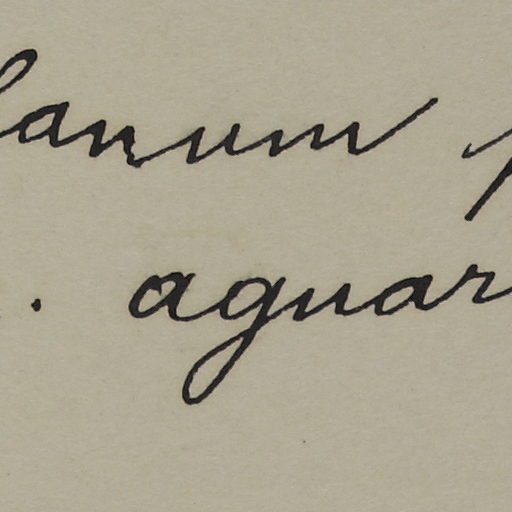 lanum p
. aguar